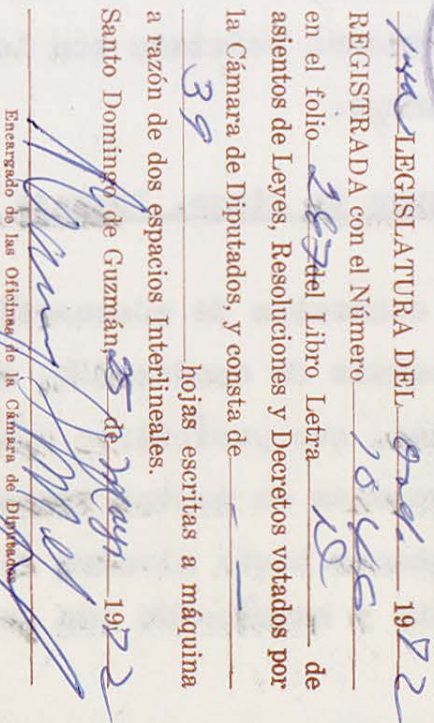 LEGISLATURA DEL Ord. 1972
REGISTRADA con el Número
en el folio 287 del Libro Letra de
asientos de Leyes, Resoluciones y Decretos votados por
la Cámara de Diputados, y consta de
39 hojas escritas a máquina
a razón de dos espacios Interlineales.
Santo Domingo de Guzmán 25 de Mayo 1972
Encargado de las Oficinas de la Cámara de Diputados